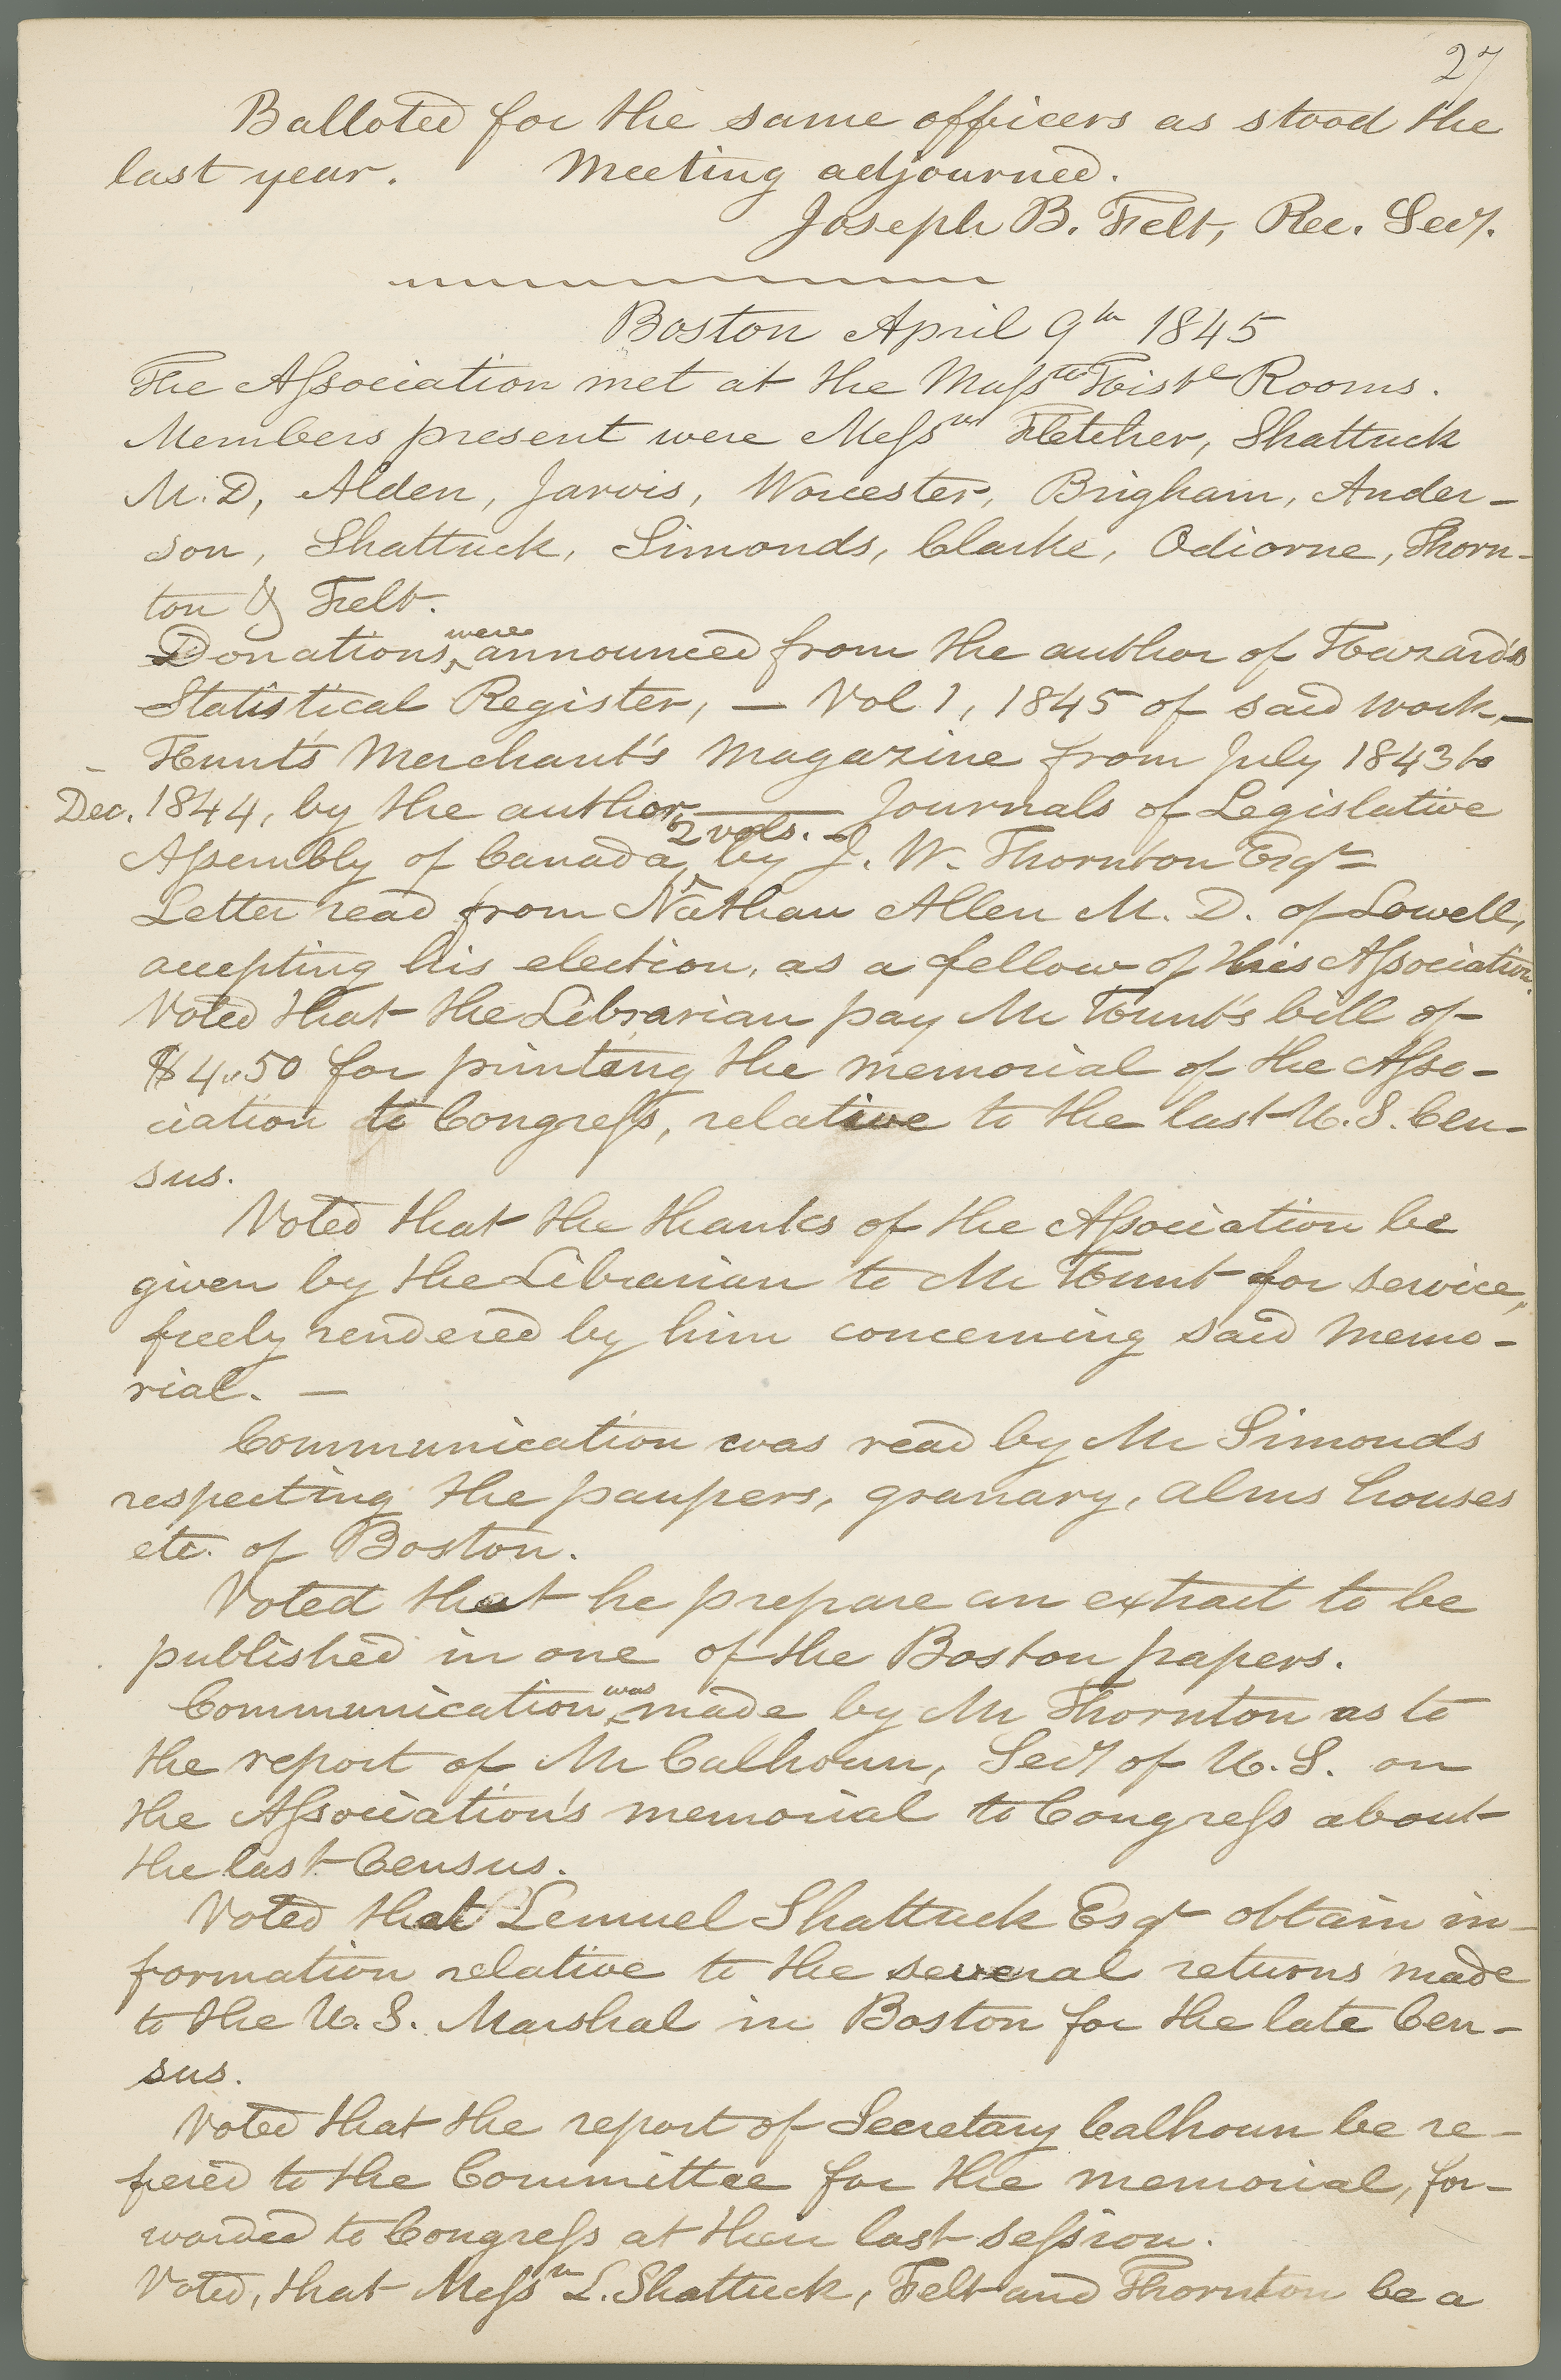 27
Balloted for the same officers as stood the
last year. Meeting adjourned.
Joseph B. Felt, Rec. Secy.
Boston April 9th 1845
The Association met at the Masstts Histl Rooms.
Members present were Messrs Fletcher, Shattuck
M.D, Alden, Jarvis, Worcester, Brigham, Ander-
son, Shattuck, Simonds, Clarke, Odiorne, Thorn-
ton & Felt.
Donations, were announced from the author of Hazard's
Statistical Register, — Vol 1, 1845 of said work, —
Hunt's Merchant's Magazine from July 1843 to
Dec. 1844, by the author, — Journals of Legislative
Assembly of Canada, 2 vols. - by J. W. Thornton Esqr —
Letter read from Nathan Allen M. D. of Lowell,
accepting his election, as a fellow of this Association.
Voted that the Librarian pay Mr Hunt's bill of
$4.50 for printing the memorial of the Asso-
ciation to Congress, relative to the last U.S. Cen-
sus.
Voted that the thanks of the Association be
given by the Librarian to Mr Hunt for service,
freely rendered by him concerning said Memo-
rial. —
Communication was read by Mr Simonds
respecting the paupers, granary, alms houses
etc. of Boston.
Voted that he prepare an extract to be
published in one of the Boston papers.
Communication was made by Mr Thornton as to
the report of Mr Calhoun, Secy of U.S. on
the Association's memorial to Congress about
the last Census.
Voted that Lemuel Shattuck Esqr obtain in-
formation relative to the several returns made
to the U.S. Marshal in Boston for the late Cen-
sus.
Voted that the report of Secretary Calhoun be re-
fered to the Committee for the memorial, for-
warded to Congress at their last session.
Voted, that Messrs L. Shattuck, Felt and Thornton be a